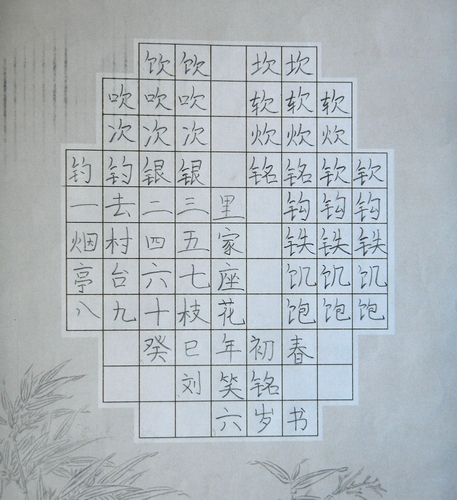 饮饮 坎坎
吹吹吹 软软软
次次次 炊炊炊
钓钓银银 铭铭钦钦
一去二三里 钩钩钩
烟村四五家 铁铁铁
亭台六七座 饥饥饥
八九十枝花 饱饱饱
癸巳年初春
刘笑铭
六岁书